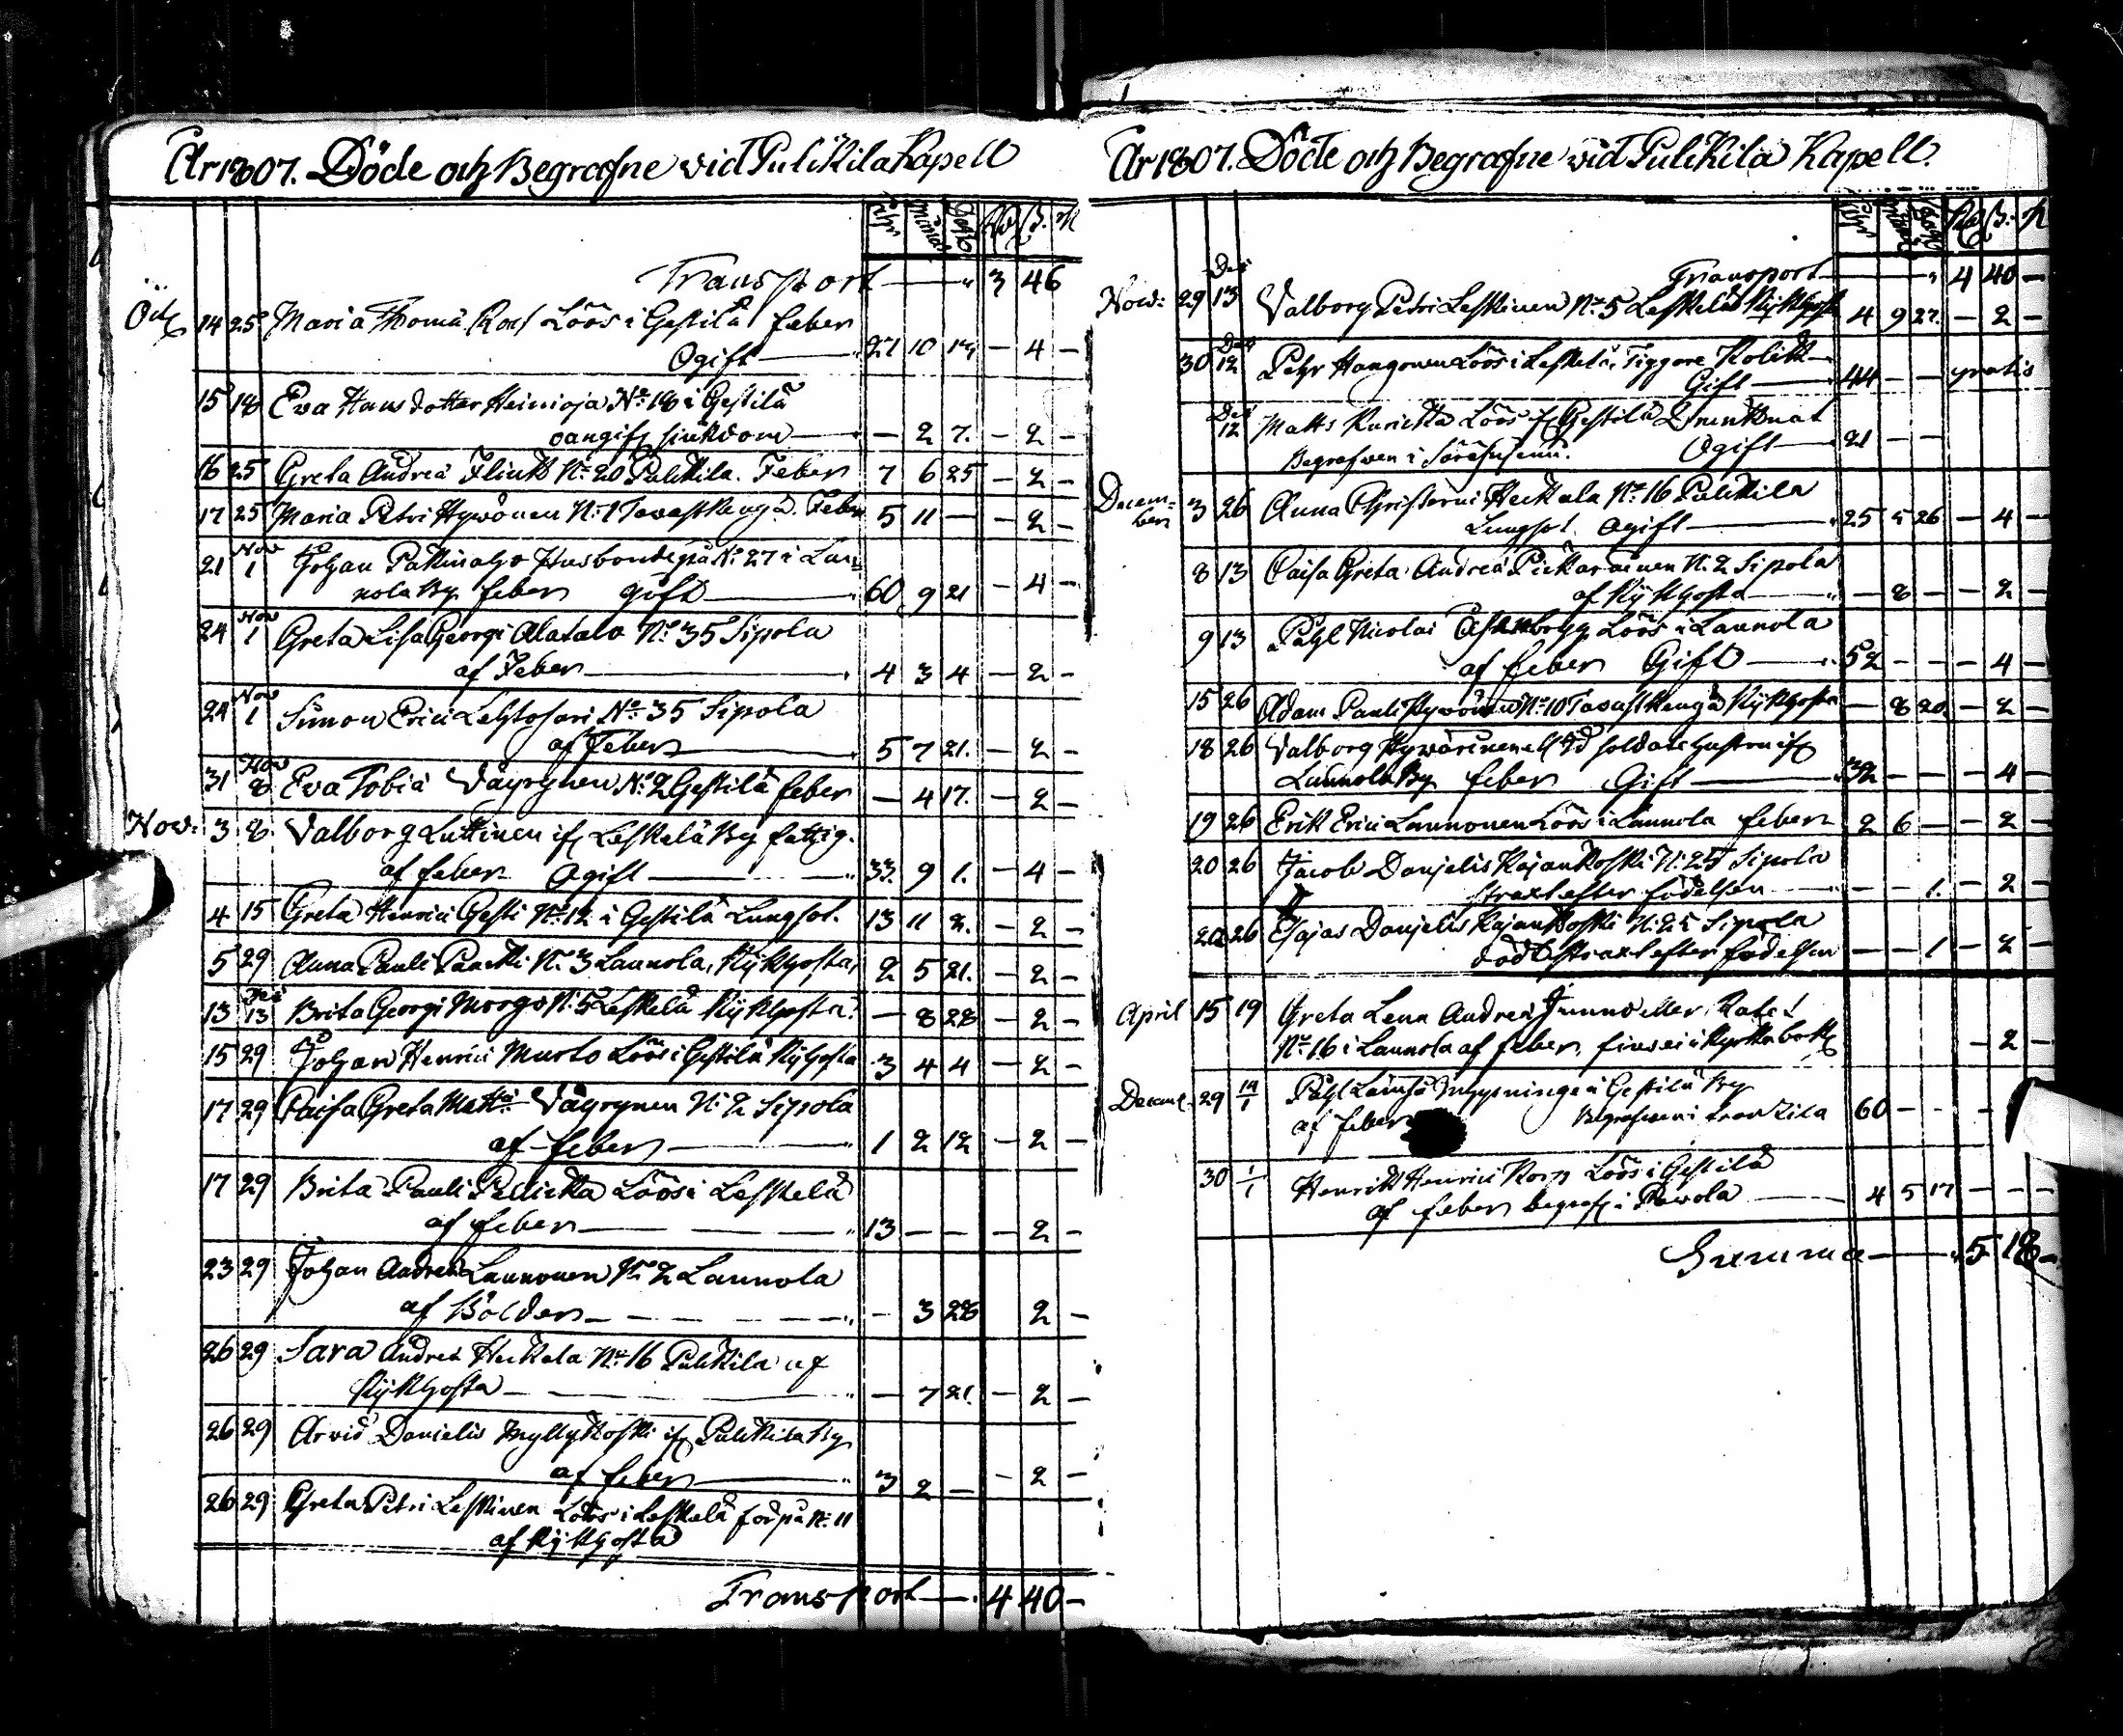 År 1807. Döde och Begrafne vid Pulkila Kapell
År Månad Dagar Rd ß. R
Transport — " 3 46
Octr 14 25 Maria Thomæ Löös i Gestilä feber
Ogift — 27 10 14 — 4 —
15 18 Eva Hans dotter Heinioja No 18 i Gestilä
oangif. siukdom — — 2 7. — 2 —
16 25 Greta Andreæ Flink No 20 Pulkkila. Feber 7 6 25 — 2 —
17 25 Maria Petri Hywönen No 1 Tavastkengä. Feber 5 11 — — 2 —
21 Nov 1 Johan Husbonde på No 27 i Lau=
nola By feber gift — 60 9 21 — 4 —
24 Nov 1 Greta Lisa Georgi Alatalo No 35 Sipola
af Feber — 4 3 4 — 2 —
24 Nov 1 Simon Erici Lehtosari No 35 Sipola
af Feber — 5 7 21. — 2 —
31 Nov 8 Eva Tobiæ Väyrynen No 2 Gestilä feber — 4 17. — 2 —
Nov: 3 8. Valborg Luttinen if. Leskelä By fattig.
af feber Ogift — 33. 9 1. — 4 —
4 15 Greta Henrici Gesti No 12 i Gestilä Lungsot. 13 11 2. — 2 —
5 29 Anna Pauli No 3 Launola, Kykhosta, 2 5 21. — 2 —
13 Dec 13 Brita Georgi No 5 Leskelä Kykhosta. — 8 28 — 2 —
15 29 Johan Henrici Murto Löös i Gestilä Kykhosta 3 4 4 — 2 —
17 29 Caisa Greta Matts Väyrynen No 2 Sipola
af feber — 1 2 12 — 2 —
17 29 Brita Pauli Löös i Leskelä
af feber — 13 — — — 2 —
23 29 Johan Andreæ Launonen No 2 Launola
af Bölder — — 3 28 2 —
26 29 Sara Andreæ Heikkala No 16 Pulkkila af
Kykhosta — — 7 21. — 2 —
26 29 Arvid Danielis Myllykoski if. Pulkkila By
af feber — 3 2 — — 2 —
26 29 Greta Petri Leskinen Löös i Leskelä på No 11
af Kykhosta
Transport — . 4 40 —
År 1807. Döde och Begrafne vid Pulkila Kapell.
År Månad Dagar Rd ß. R
Transport — " 4 40 —
Nov: 29 Dec 13 Valborg Petri Leskinen No 5 Leskelä Kykhosta 4 9 27. — 2 —
30 Dec 12 Petr Hangonen Löös i Leskelä, Tiggare Kolik
Gift — 44 — — gratis
Dec 12 Matts Löös if. Gestilä Drunknat
Begrafven i Ogift 21 — —
Decem=
ber 3 26 Anna Christerni Heikkala No 16 Pulkkila
Lungsot. ogift — 25 5 26 — 4 —
8 13 Caisa Greta Andreæ Pickarainen No 2 Sipola
af Kykhosta — — 8 — — 2 —
9 13 Påhl Nicolai Löös i Launola
af feber Gift — 52 — — — 4 —
15 26 Adam Pauli Hywönen No 10 Tavastkengä Kykhosta — 8 20. — 2 —
18 26 Valborg soldatehustru if.
Launola By feber Gift — 32 — — — 4 —
19 26 Erik Erici Launonen Löös i Launola feber 2 6 — — 2 —
20 26 Jacob Danjelis Kajankoski No 25 Sipola
straxt efter födelsen — — — 1. — 2 —
20 26 Esajas Danjelis Kajankoski No 25 Sipola
död straxt efter födelsen — — 1 — 2 —
April 15 19 Greta Lena Andreæ Junno eller
No 16 i Launola af feber, fins ei i kyrko bok — 2 —
Decemb. 29 14/1 Påhl Lämsä Inhysning i Gestilä By
af feber Begrafven i Frantzila 60 — — —
30 1/1 Henrik Henrici Löös i Gestilä
af feber begrafv. i Pavola — 4 5 17 — — —
Summa — " 5 18 —